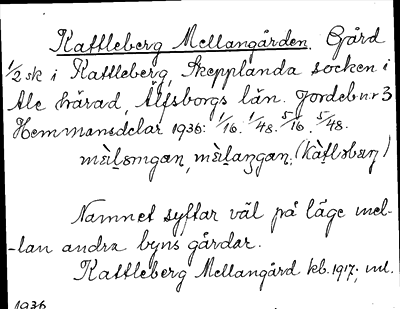 Kattleberg Mellangården. Gård
1/2 sk i Kattleberg, Skepplanda socken i
Ale härad, Älfsborgs län. Jordeb nr 3
Hemmansdelar 1936: 1/16. 1/48. 5/16. 5/48.
Namnet syftar väl på läge mel-
-lan andra byns gårdar.
Kattleberg Mellangård kb. 1917; inl.
1936